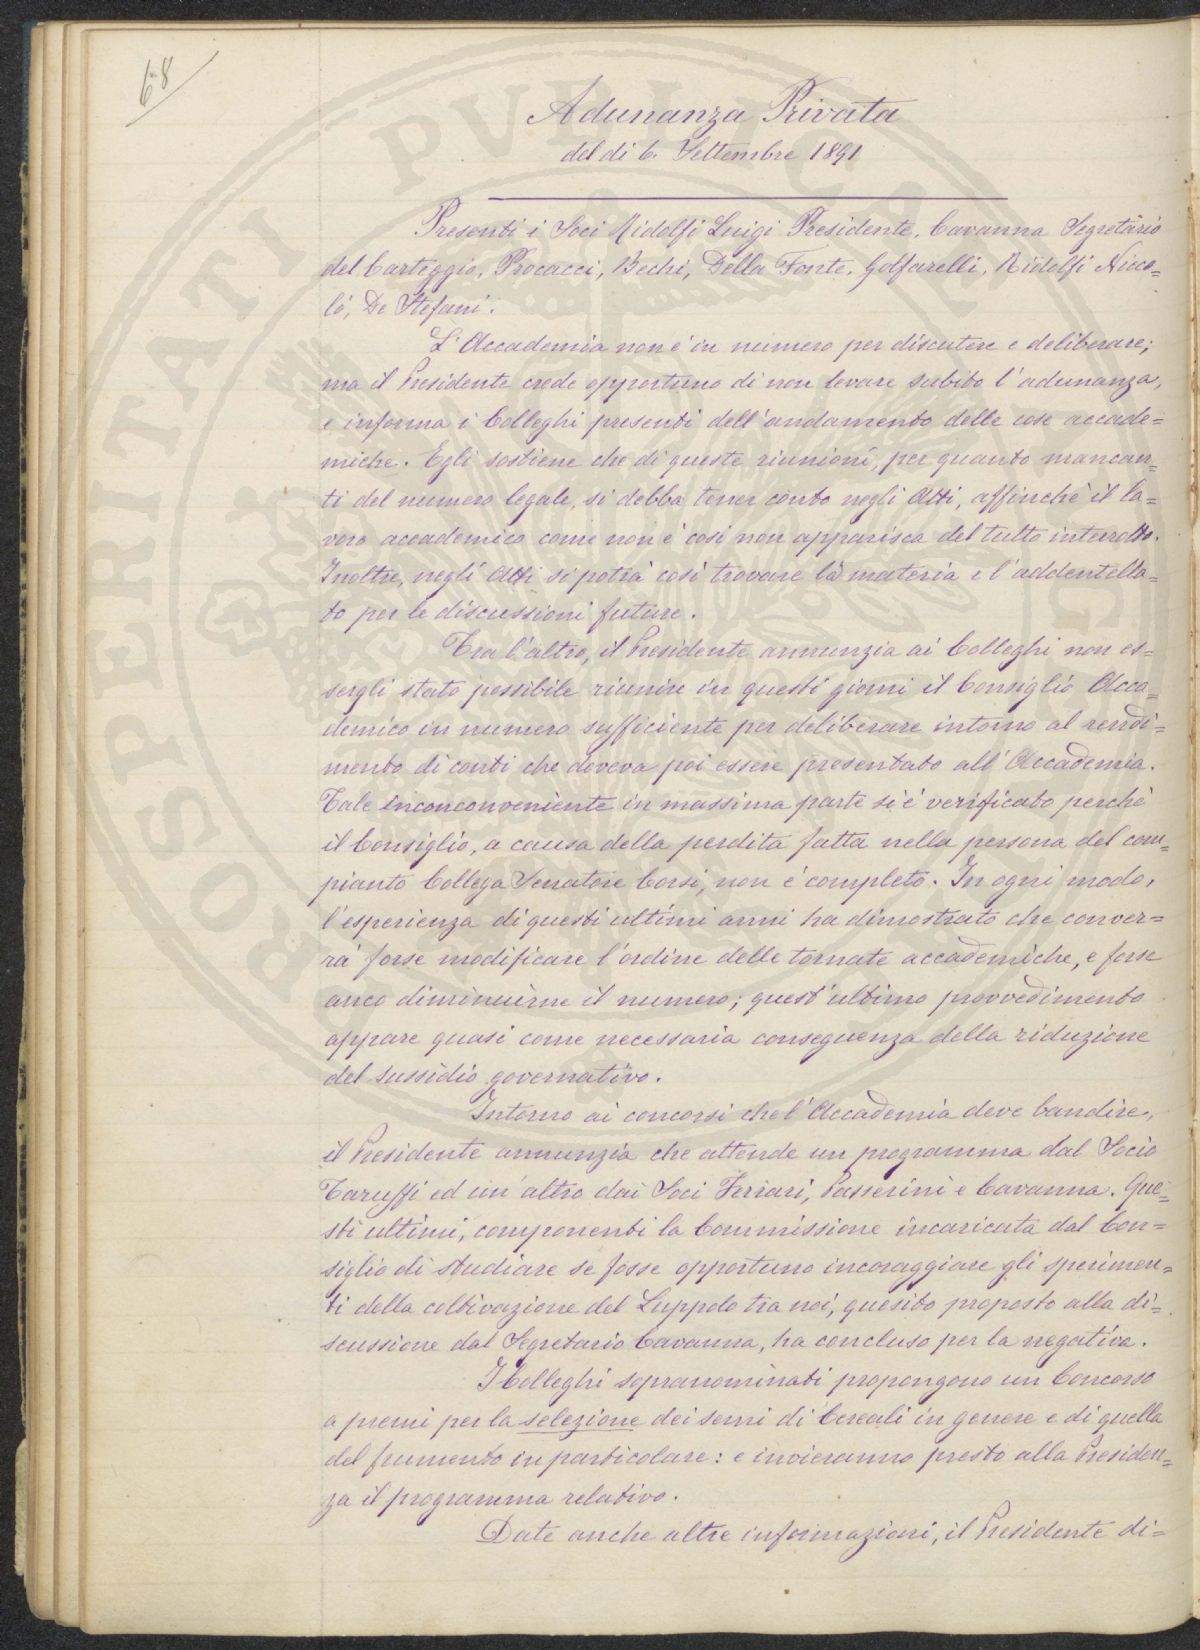 68
Adunanza Privata
del dì 6. Settembre 1891
Presenti i Soci Ridolfi Luigi Presidente, Cavanna Segretario
del Carteggio, Procacci, Bechi, Della Fonte, Golfarelli, Ridolfi Nicco=
lò, De Stefani.
L'Accademia non è in numero per discutere e deliberare;
ma il Presidente crede opportuno di non levare subito l'adunanza,
e informa i Colleghi presenti dell'andamento delle cose accade=
miche. Egli sostiene che di queste riunioni, per quanto mancan=
ti del numero legale, si debba tener conto negli Atti, affinchè il la=
voro accademico come non è così non apparisca del tutto interrotto.
Inoltre, negli Atti si potrà così trovare la materia e l'addentella=
to per le discussioni future.
Tra l'altro, il Presidente annunzia ai Colleghi non es=
sergli stato possibile riunire in questi giorni il Consiglio Acca=
demico in numero sufficiente per deliberare intorno al rendi=
mento di conti che doveva poi essere presentato all'Accademia.
Tale inconconveniente in massima parte si è verificato perchè
il Consiglio, a causa della perdita fatta nella persona del com=
pianto Collega Senatore Corsi, non è completo. In ogni modo,
l'esperienza di questi ultimi anni ha dimostrato che conver=
rà forse modificare l'ordine delle tornate accademiche, e forse
anco diminuirne il numero; quest'ultimo provvedimento
appare quasi come necessaria conseguenza della riduzione
del sussidio governativo.
Intorno ai concorsi che l'Accademia deve bandire,
il Presidente annunzia che attende un programma dal Socio
Taruffi ed un'altro dai Soci Ferrari, Passerini e Cavanna. Que=
sti ultimi, componenti la Commissione incaricata dal Con=
siglio di studiare se fosse opportuno incoraggiare gli sperimen=
ti della coltivazione del Luppolo tra noi, quesito proposto alla di=
scussione dal Segretario Cavanna, ha concluso per la negativa.
I Colleghi sopranominati propongono un Concorso
a premi per la selezione dei semi di Cereali in genere e di quella
del frumento in particolare: e invieranno presto alla Presiden=
za il programma relativo.
Date anche altre informazioni, il Presidente di=
PROSPERITATI PVBLICAE